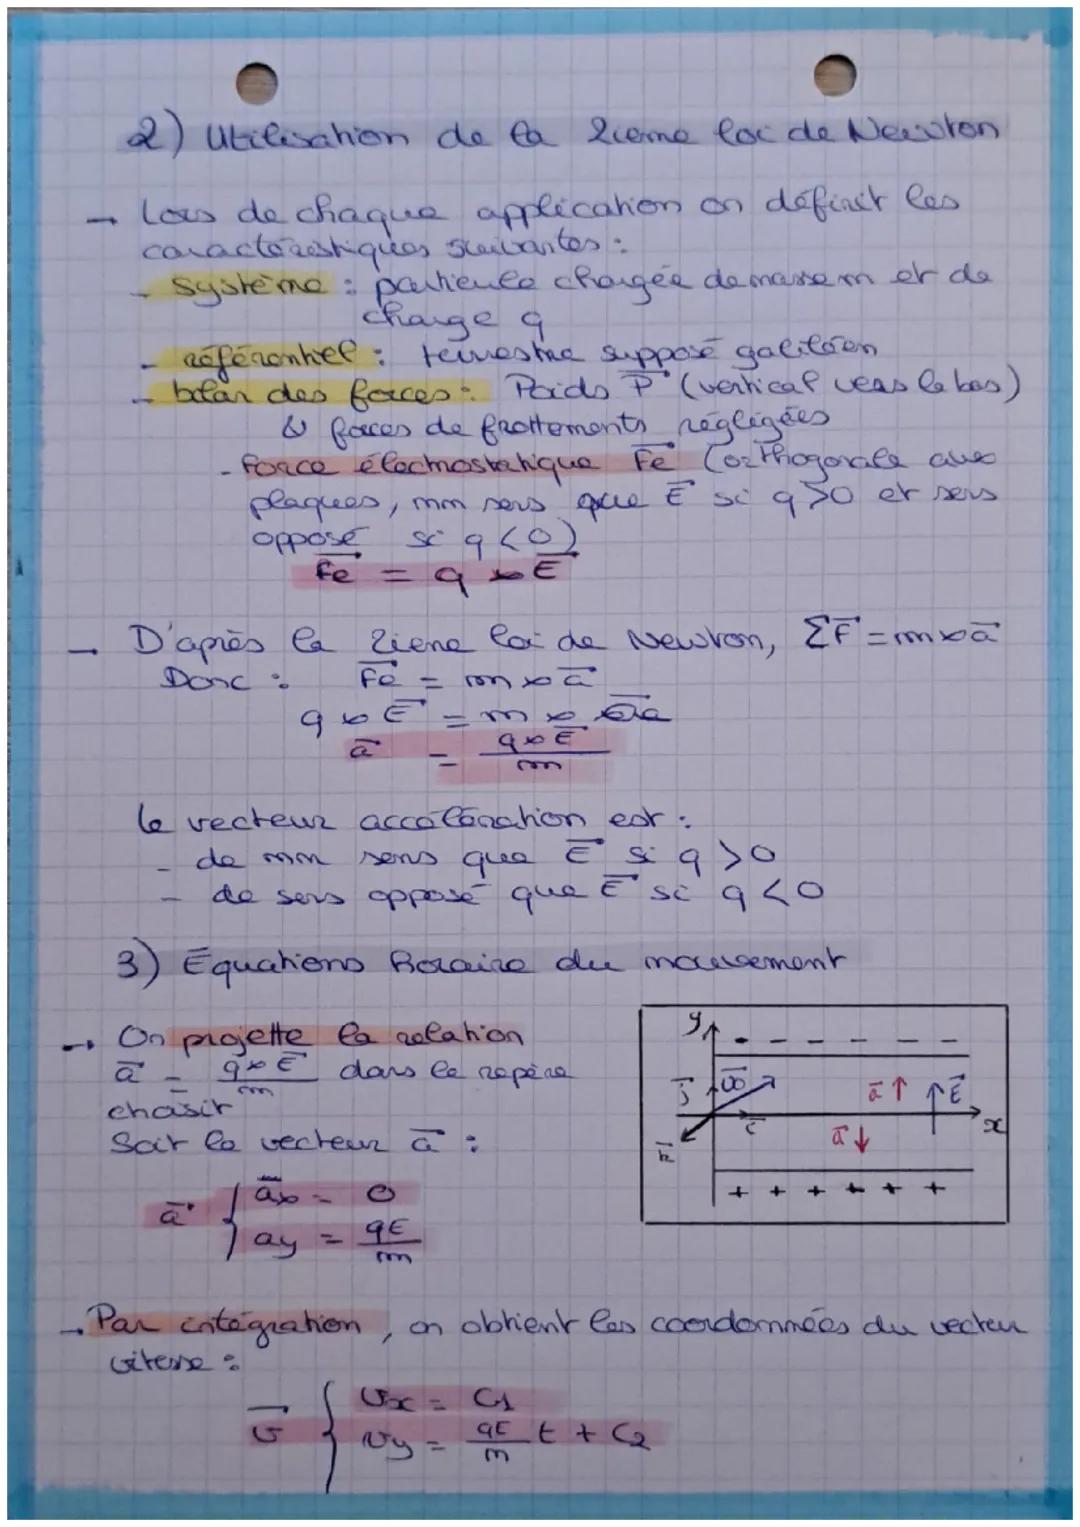 2) Utilisation de la 2ieme loi de Newton
→ Lors de chaque application on définit les
caractéristiques suivantes :
- système : particule chargée de masse m et de
charge q
- référentiel : terrestre supposé galiléen
- bilan des forces : Poids P⃗ (vertical vers le bas)
↳ forces de frottements négligées
- force électrostatique Fe⃗ (orthogonale aux
plaques, mm sens que E⃗ si q>0 et sens
opposé si q<0)
Fe⃗ = q × E⃗
→ D'après la 2ieme loi de Newton, ΣF⃗ = m × a⃗
Donc : Fe⃗ = m × a⃗
q × E⃗ = m × a⃗
a⃗ = q × E⃗ / m
le vecteur accélération est :
- de mm sens que E⃗ si q > 0
- de sens opposé que E⃗ si q < 0
3) Équations horaire du mouvement
→ On projette la relation
a⃗ = q × E⃗ / m dans le repère
choisit
Soit le vecteur a⃗ :
a⃗ { ax = 0
ay = qE / m
y - - - - - - -
j⃗ v0⃗ a⃗ ↑ ↑ E⃗
k⃗ i⃗ a⃗ ↓ x
+ + + + + +
→ Par intégration, on obtient les coordonnées du vecteur
vitesse :
v⃗ { vx = C1
vy = qE / m t + C2